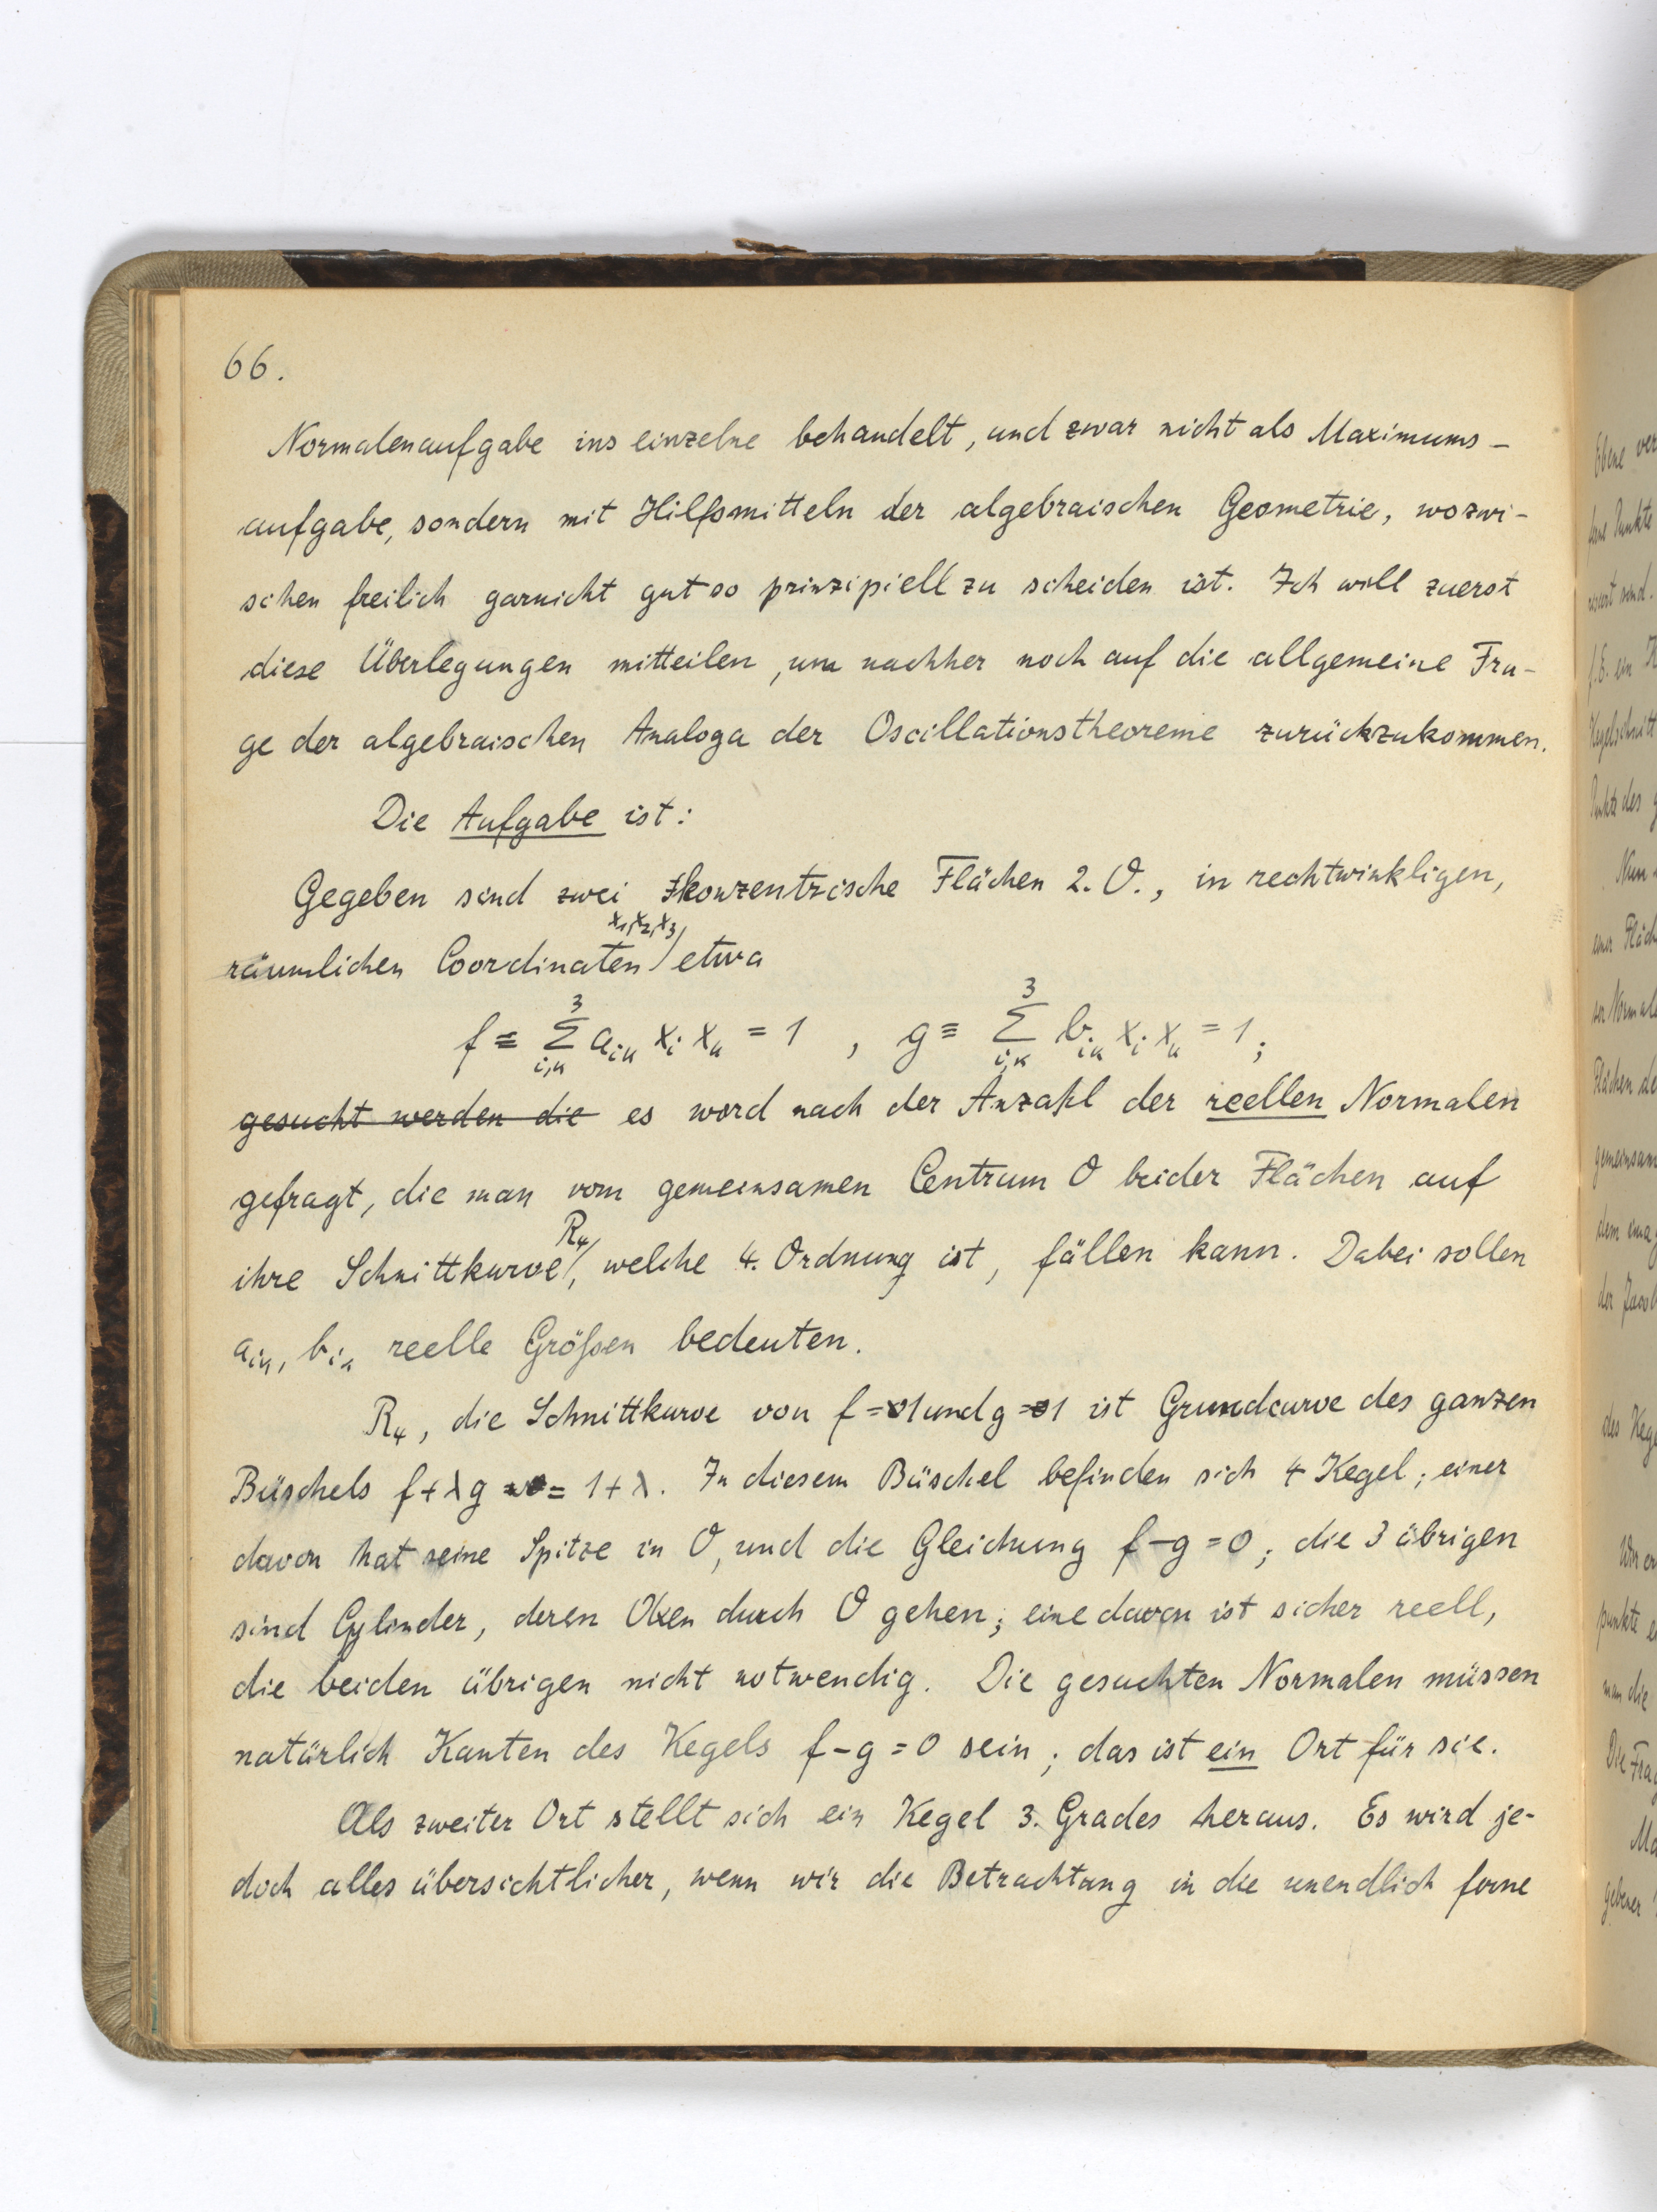 66.
Normalenaufgabe ins einzelne behandelt, und zwar nicht als Maximums-
aufgabe, sondern mit Hilfsmitteln der algebraischen Geometrie, wozwi-
schen freilich garnicht gut so prinzipiell zu scheiden ist. Ich will zuerst
diese Überlegungen mitteilen, um nachher noch auf die allgemeine Fra-
ge der algebraischen Analoga der Oscillationstheoreme zurückzukommen.
Die Aufgabe ist:
Gegeben sind zwei konzentrische Flächen 2. O., in rechtwinkligen,
räumlichen Coordinaten x₁, x₂, x₃ etwa
f ≡ Σ³ᵢ,ₖ aᵢₖ xᵢ xₖ = 1 , g ≡ Σ³ᵢ,ₖ bᵢₖ xᵢ xₖ = 1;
gesucht werden die es word nach der Anzahl der reellen Normalen
gefragt, die man vom gemeinsamen Centrum O beider Flächen auf
ihre Schnittkurve R₄, welche 4. Ordnung ist, fällen kann. Dabei sollen
aᵢₖ, bᵢₖ reelle Größen bedeuten.
R₄, die Schnittkurve von f=1 und g=1 ist Grundcurve des ganzen
Büschels f+λg = 1+λ. In diesem Büschel befinden sich 4 Kegel; einer
davon hat seine Spitze in O, und die Gleichung f-g=0; die 3 übrigen
sind Cylinder, deren Axen durch O gehen; eine davon ist sicher reell,
die beiden übrigen nicht notwendig. Die gesuchten Normalen müssen
natürlich Kanten des Kegels f-g=0 sein; das ist ein Ort für sie.
Als zweiter Ort stellt sich ein Kegel 3. Grades heraus. Es wird je-
doch alles übersichtlicher, wenn wir die Betrachtung in die unendlich ferne